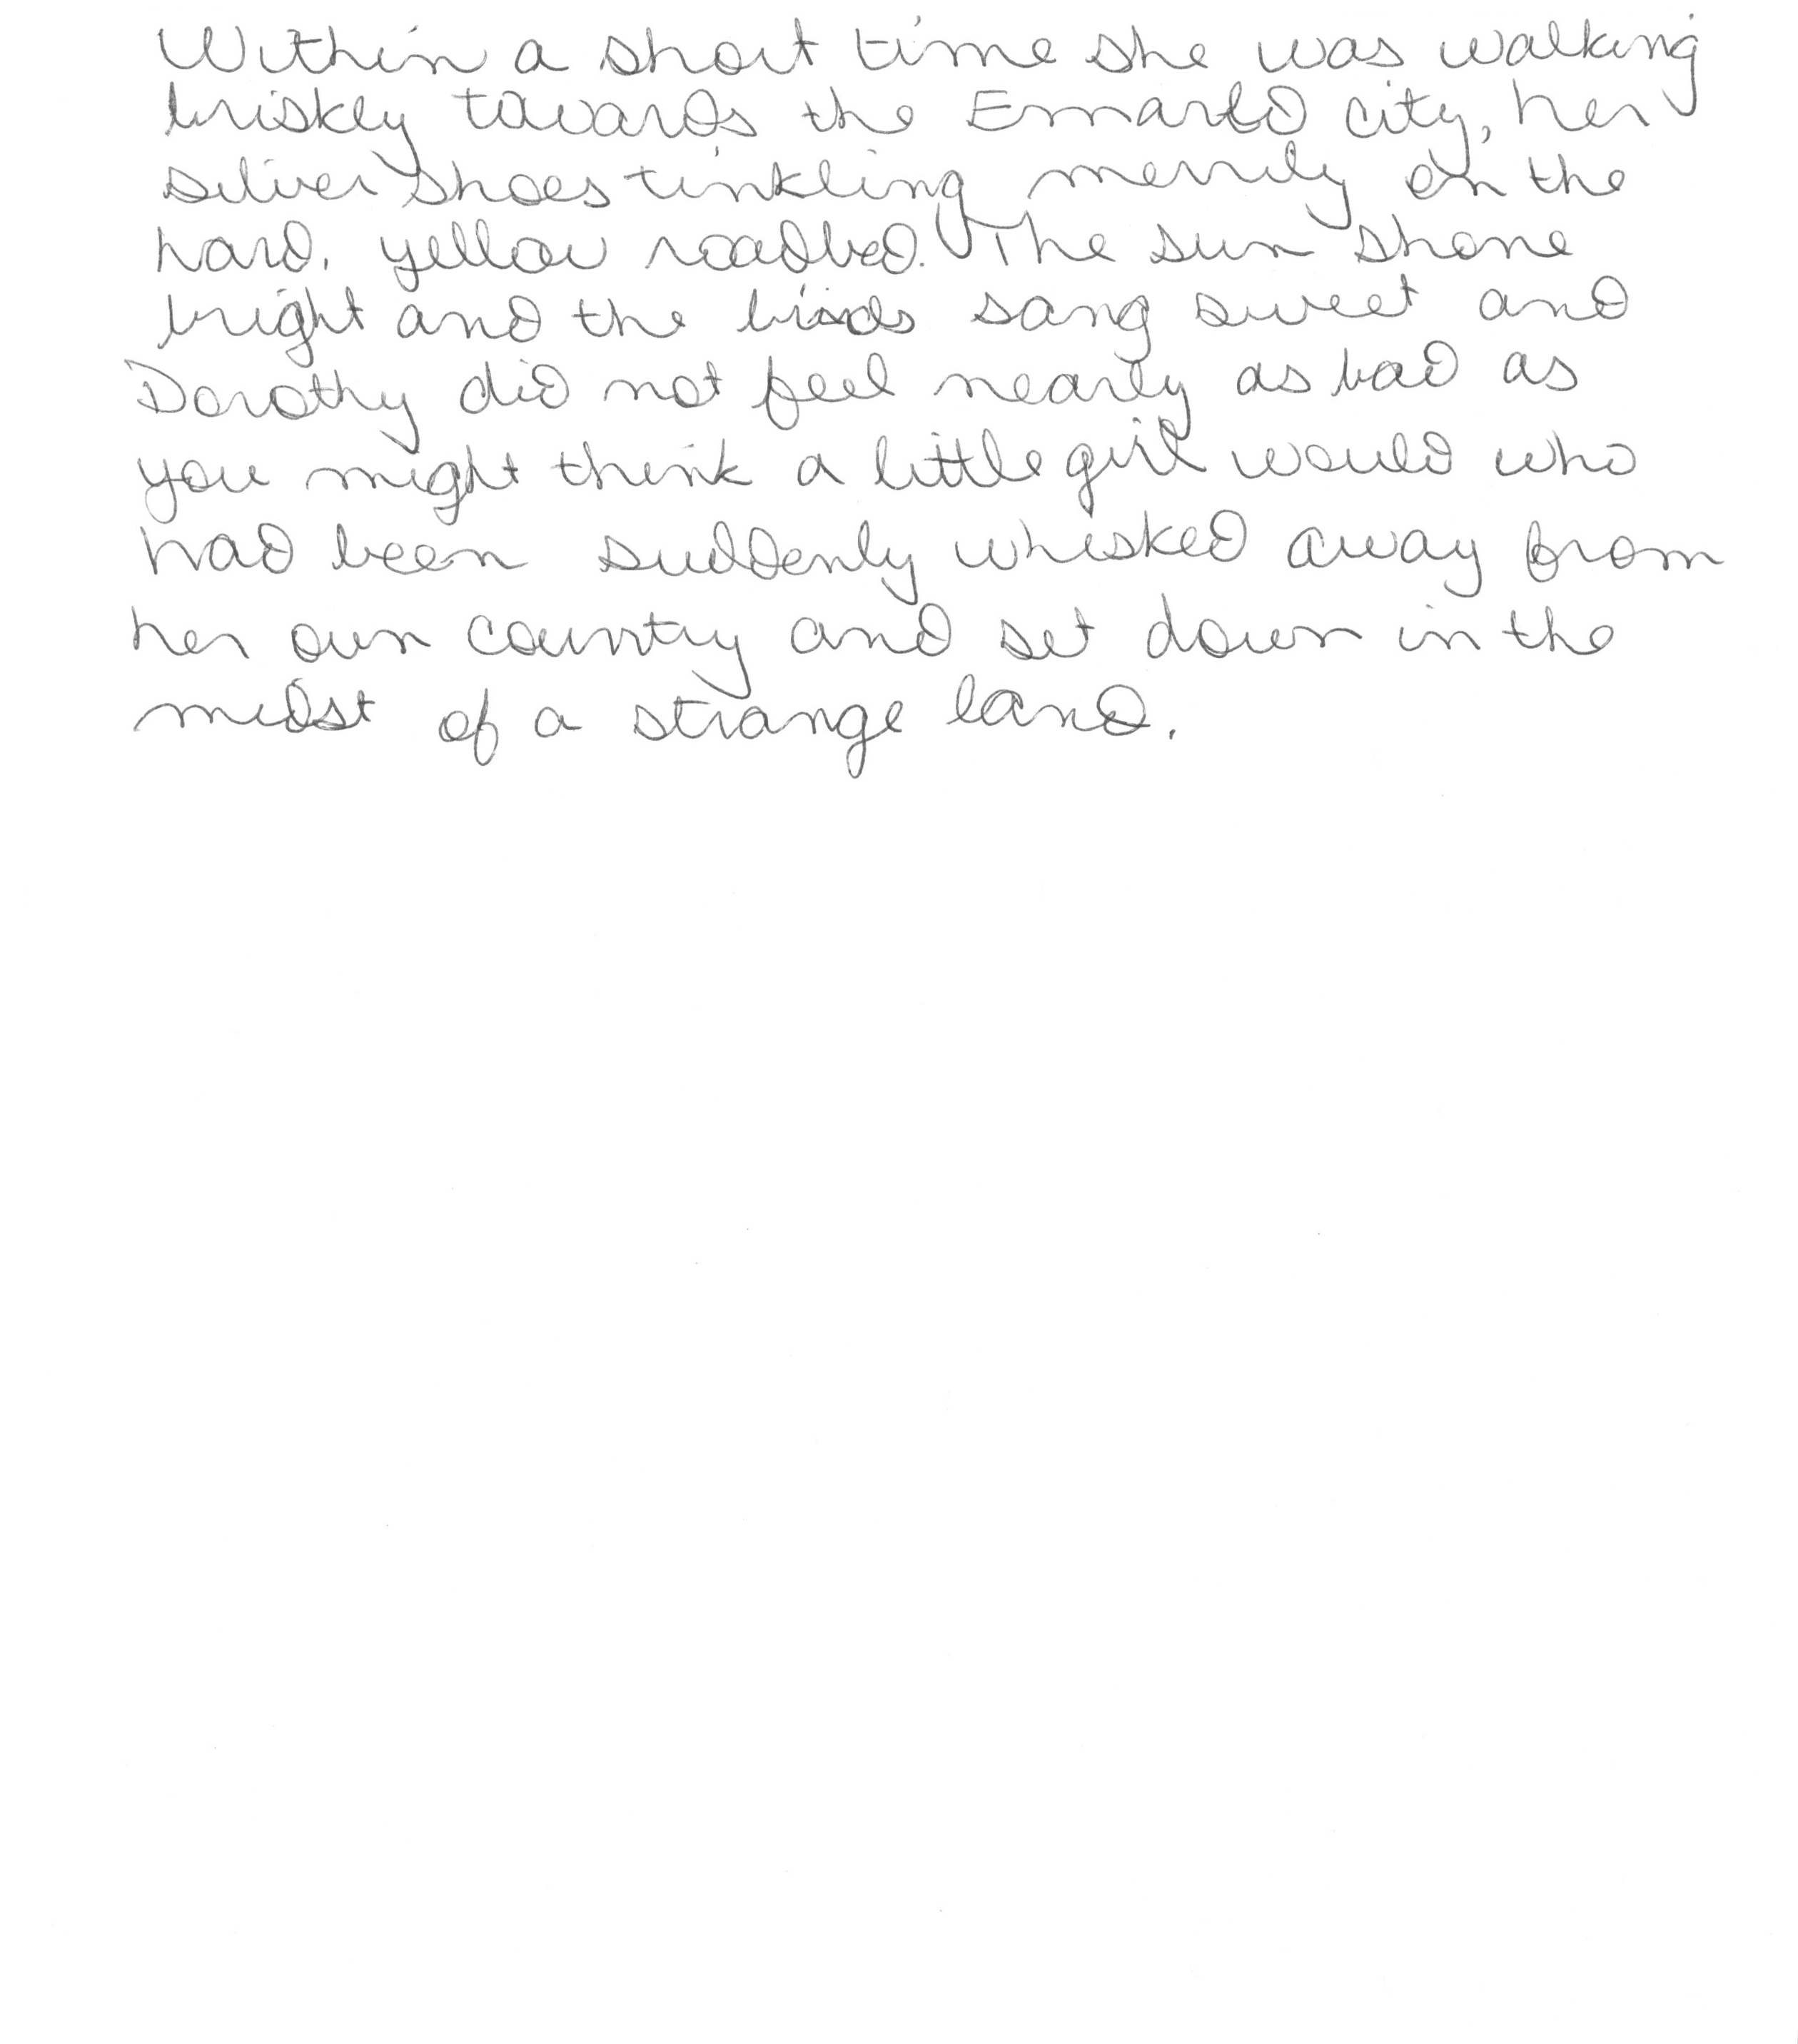 Within a short time she was walking
briskly towards the Emmarld city, her
silver shoes tinkling merrily on the
hard, yellow roadbed. The sun shone
bright and the birds sang sweet and
Dorothy did not feel nearly as bad as
you might think a little girl would who
had been suddenly whisked away from
her own country and set down in the
midst of a strange land.